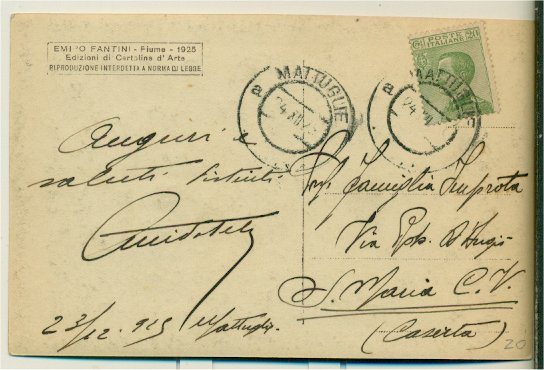 EMI O FANTINI - Fiume - 1925
Edizioni di Cartoline d'Arte
RIPRODUZIONE INTERDETTA A NORMA DI LEGGE
MATTUGLIE
a
24 XII
MATTUGLIE
a
24 XII
POSTE ITALIANE
Auguri e
saluti distinti
23/12 925 Mattuglie.
Famiglia Improta
Via
S. Maria C. V.
(Caserta)
20